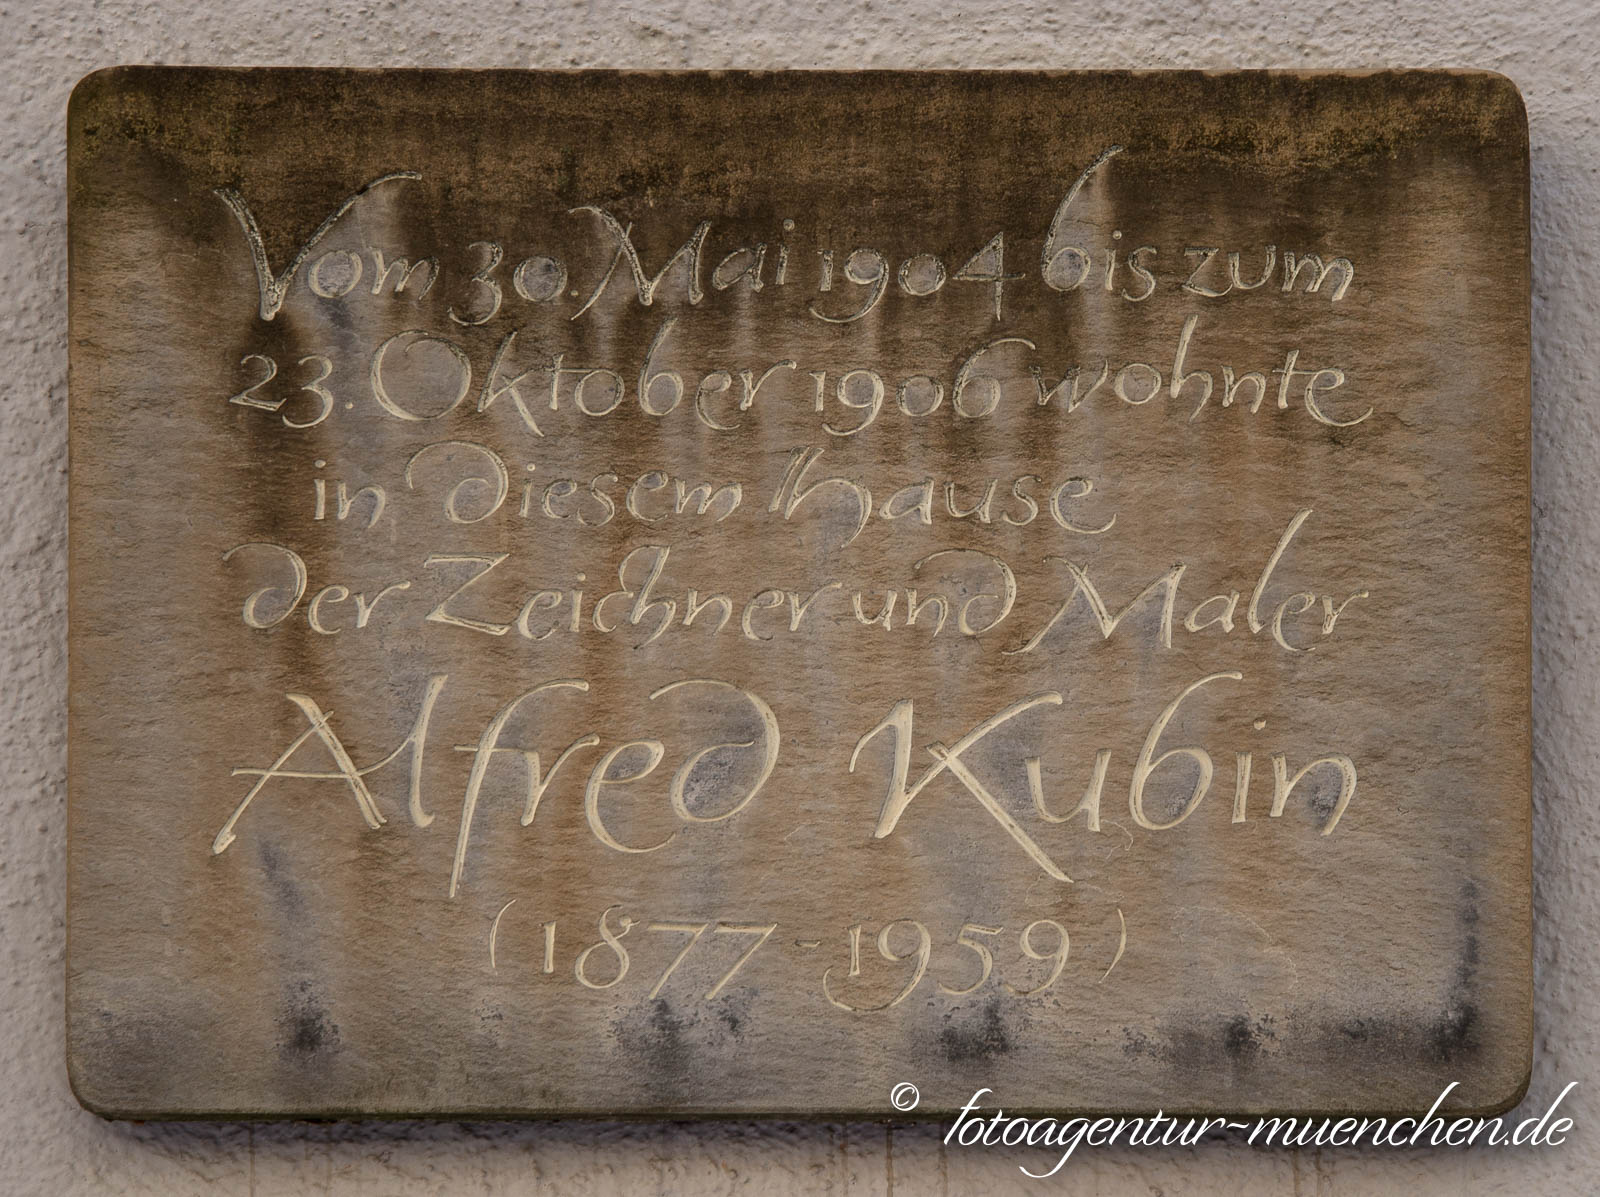 Vom 30. Mai 1904 bis zum
23. Oktober 1906 wohnte
in diesem Hause
der Zeichner und Maler
Alfred Kubin
(1877-1959)
© fotoagentur-muenchen.de